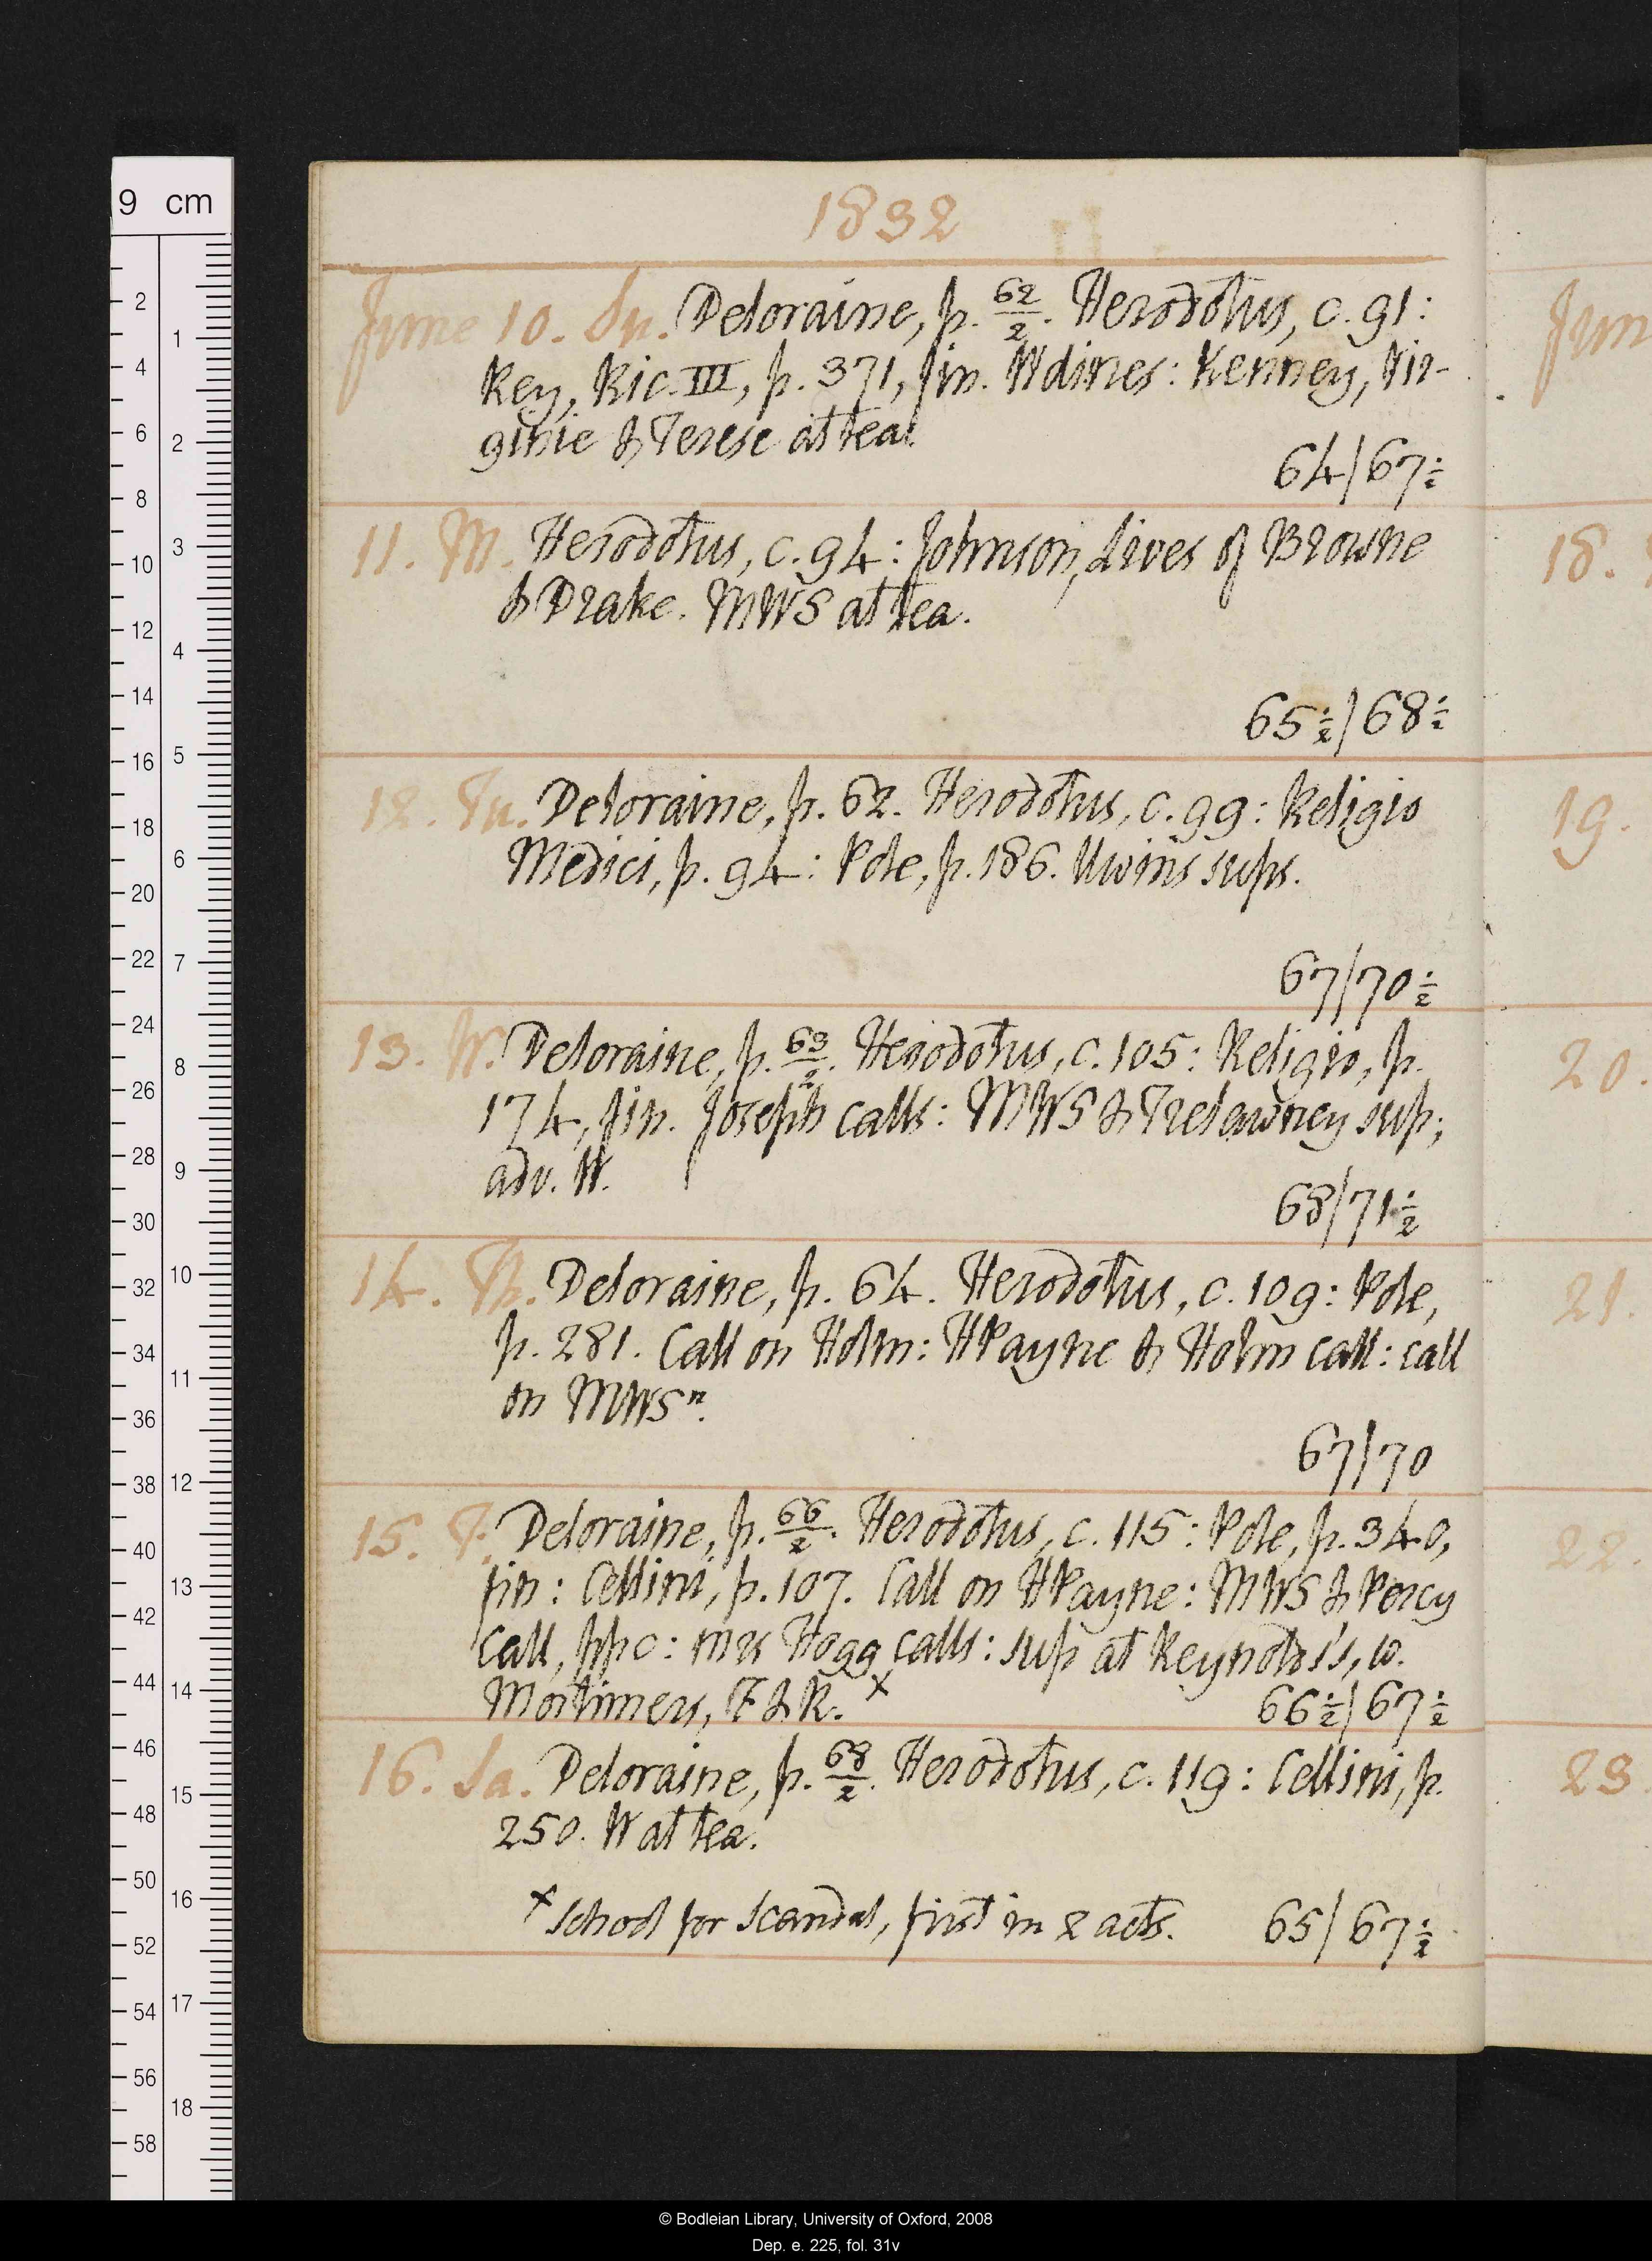 1832
June 10. Su. Deloraine, p. 62/2. Herodotus, c. 91:
Key, Ric. III, p. 371, fin. W dines: Kenney, Vir-
ginie & Terese at tea.
64/67½
11. M. Herodotus, c. 94: Johnson, Lives of Browne
& Drake. MWS at tea.
65½/68½
12. Tu. Deloraine, p. 62. Herodotus, c. 99: Religio
Medici, p. 94: Pole, p. 186. Uwins sups.
67/70½
13. W. Deloraine, p. 63/2. Herodotus, c. 105: Religio, p.
174, fin. Joseph calls: MWS & Trelawney sup;
adv. W.
68/71½
14. Th. Deloraine, p. 64. Herodotus, c. 109: Pole,
p. 281. Call on Holm: HPayne & Holm call: call
on MWSn.
67/70
15. F. Deloraine, p. 66/2. Herodotus, c. 115: Pole, p. 340,
fin: Cellini, p. 107. Call on HPayne: MWS & Percy
call, ppc: mrs Hogg calls: sup at Reynolds's, w.
Mortimers, F & R. x
66½/67½
16. Sa. Deloraine, p. 68/2. Herodotus, c. 119: Cellini, p.
250. W at tea.
x School for Scandal, first in 2 acts.
65/67½
Jun
18.
19.
20.
21.
22.
23
9 cm
2
4
6
8
10
12
14
16
18
20
22
24
26
28
30
32
34
36
38
40
42
44
46
48
50
52
54
56
58
1
2
3
4
5
6
7
8
9
10
11
12
13
14
15
16
17
18
© Bodleian Library, University of Oxford, 2008
Dep. e. 225, fol. 31v